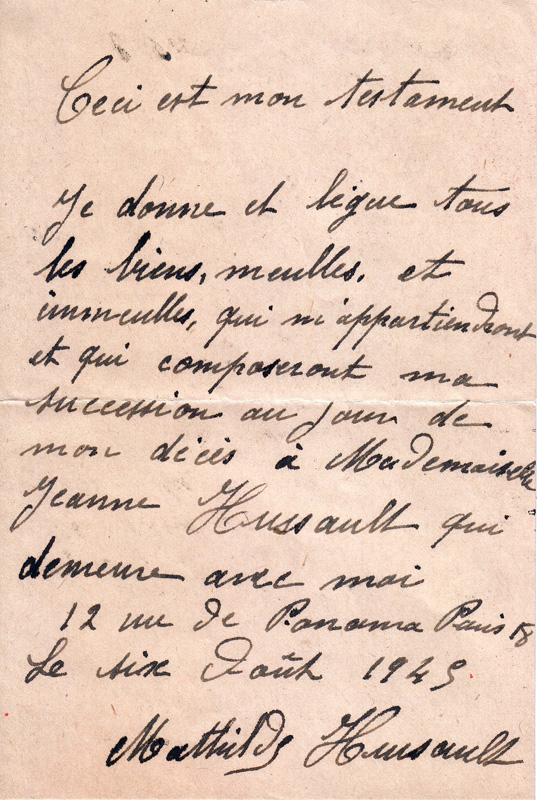 Ceci est mon testament
Je donne et lègue tous
les biens, meubles, et
immeubles, qui m'appartiendront
et qui composeront ma
succession au jour de
mon décès à Mademoiselle
Jeanne Hussault qui
demeure avec moi
12 rue de Panama Paris 18
Le six Août 1945
Mathilde Hussault